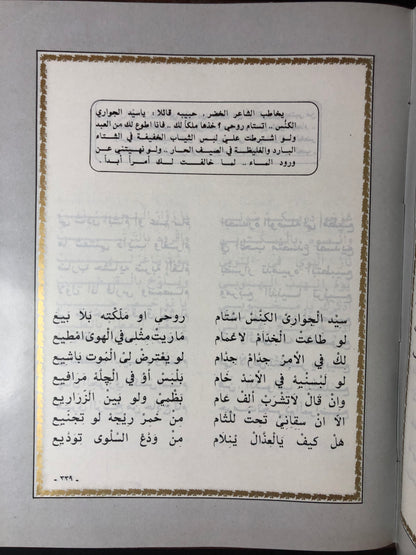 يخاطب الشاعر الخضر، حبيبه قائلا: ياسيد الجواري
الكنس .. اتستام روحي؟ خذها ملكاً لك .. فانا اطوع لك من العبد
ولو اشترطت علي لبس الثياب الخفيفة في الشتاء
البارد والغليظة في الصيف الحار .. ولو نهيتني عن
ورود الماء .. لما خالفت لك أمراً أبداً.
سيد الجواري الكنس استام روحي او ملكته بلا بيع
لو طاعت الخدام لاعمام ماريت مثلي في الهوى امطيع
لك في الأمر جدام جدام لو يفترض لي الموت باشيع
لو لبسنيه في الاسد خام بلبس أو في الجله مرافيع
وان قال لاتشرب ألف عام بظبي ولو بين الزراريع
الا ان سقاني تحت للثام من خمر ريجه لو تجنيع
هل كيف يالعذال ينلام من ودع السلوى توديع
- ٣٣٩ -